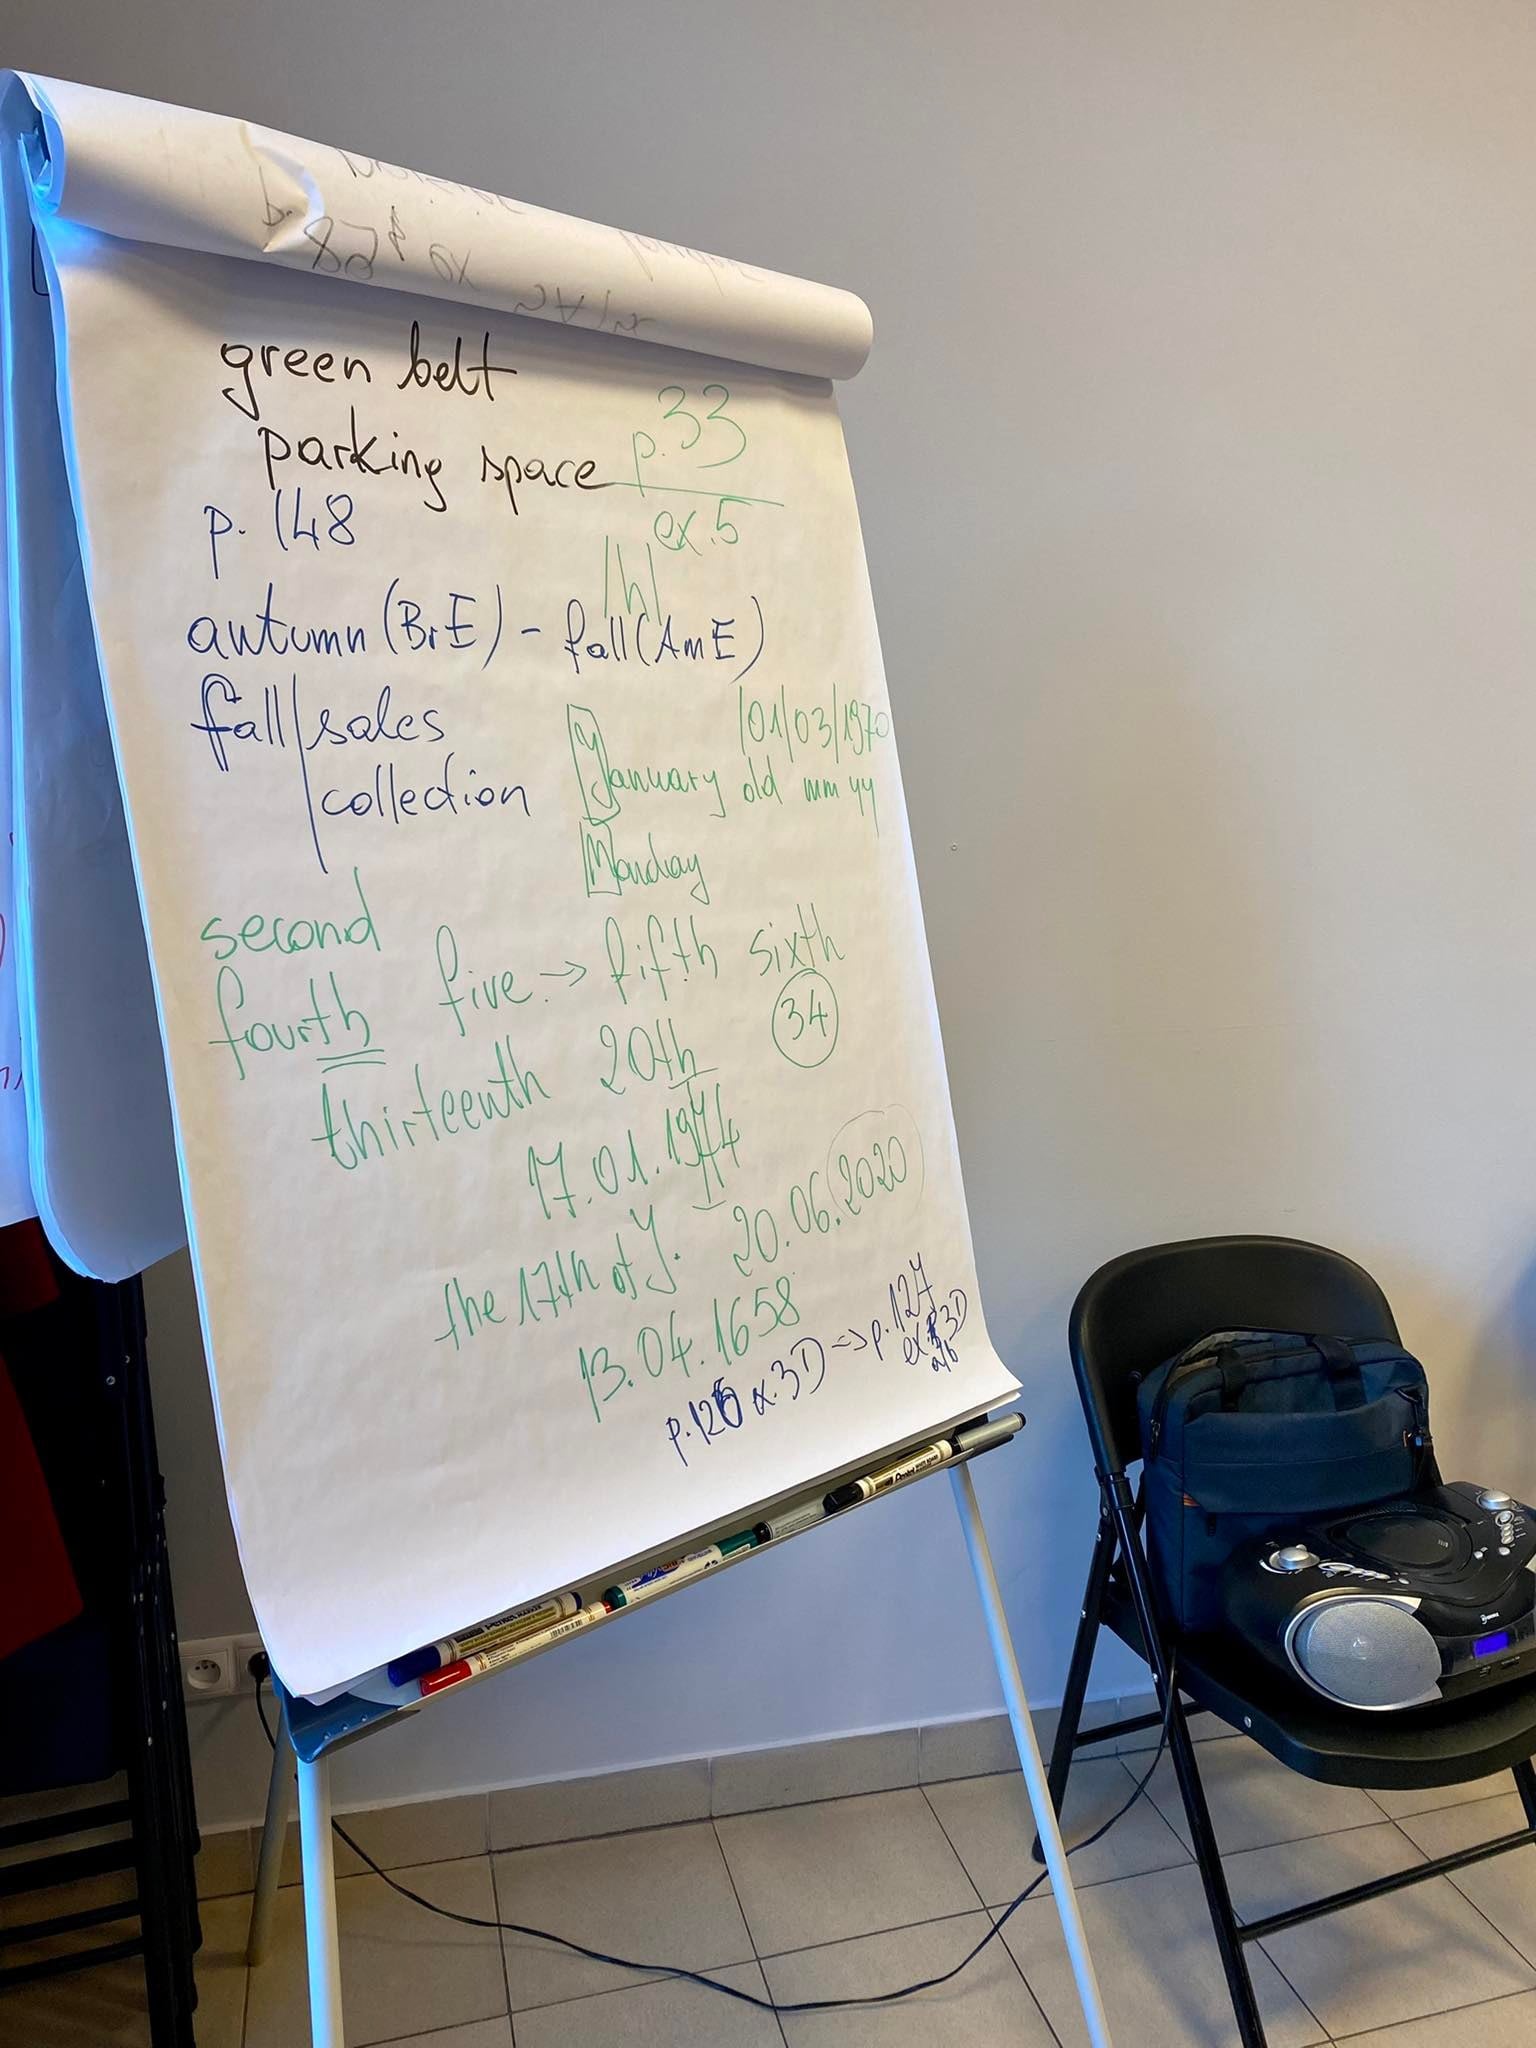 green belt
parking space
p. 33
ex. 5
p. 148
/h/
autumn (BrE) - fall (AmE)
fall/sales
collection
/01/03/1970
January old mm yy
Monday
second
fourth five → fifth sixth
34
thirteenth 20th
17.01.1974
the 17th of J. 20.06.2020
13.04.1658
p.126 ex.3D => p.127
ex. 3D
a/b
Pentel